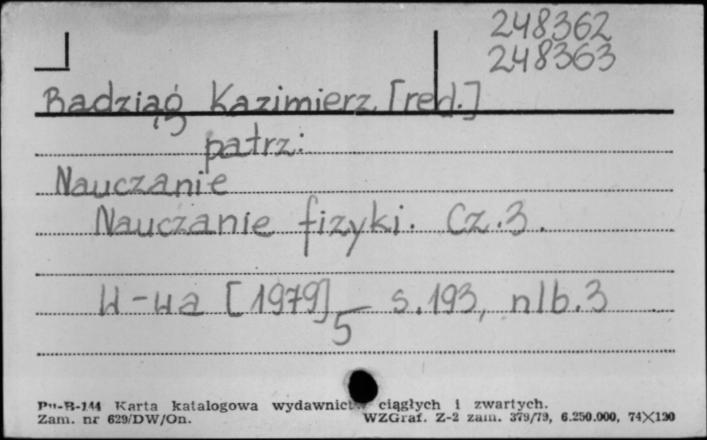 248362
248363
Badziąg Kazimierz [red.]
patrz:
Nauczanie
Nauczanie fizyki. Cz.3.
W-wa [1979] s.193, nlb.3
5
Pu-B-144 Karta katalogowa wydawnictw ciągłych i zwartych.
Zam. nr 629/DW/On. WZGraf. Z-2 zam. 379/79, 6.250.000, 74×120